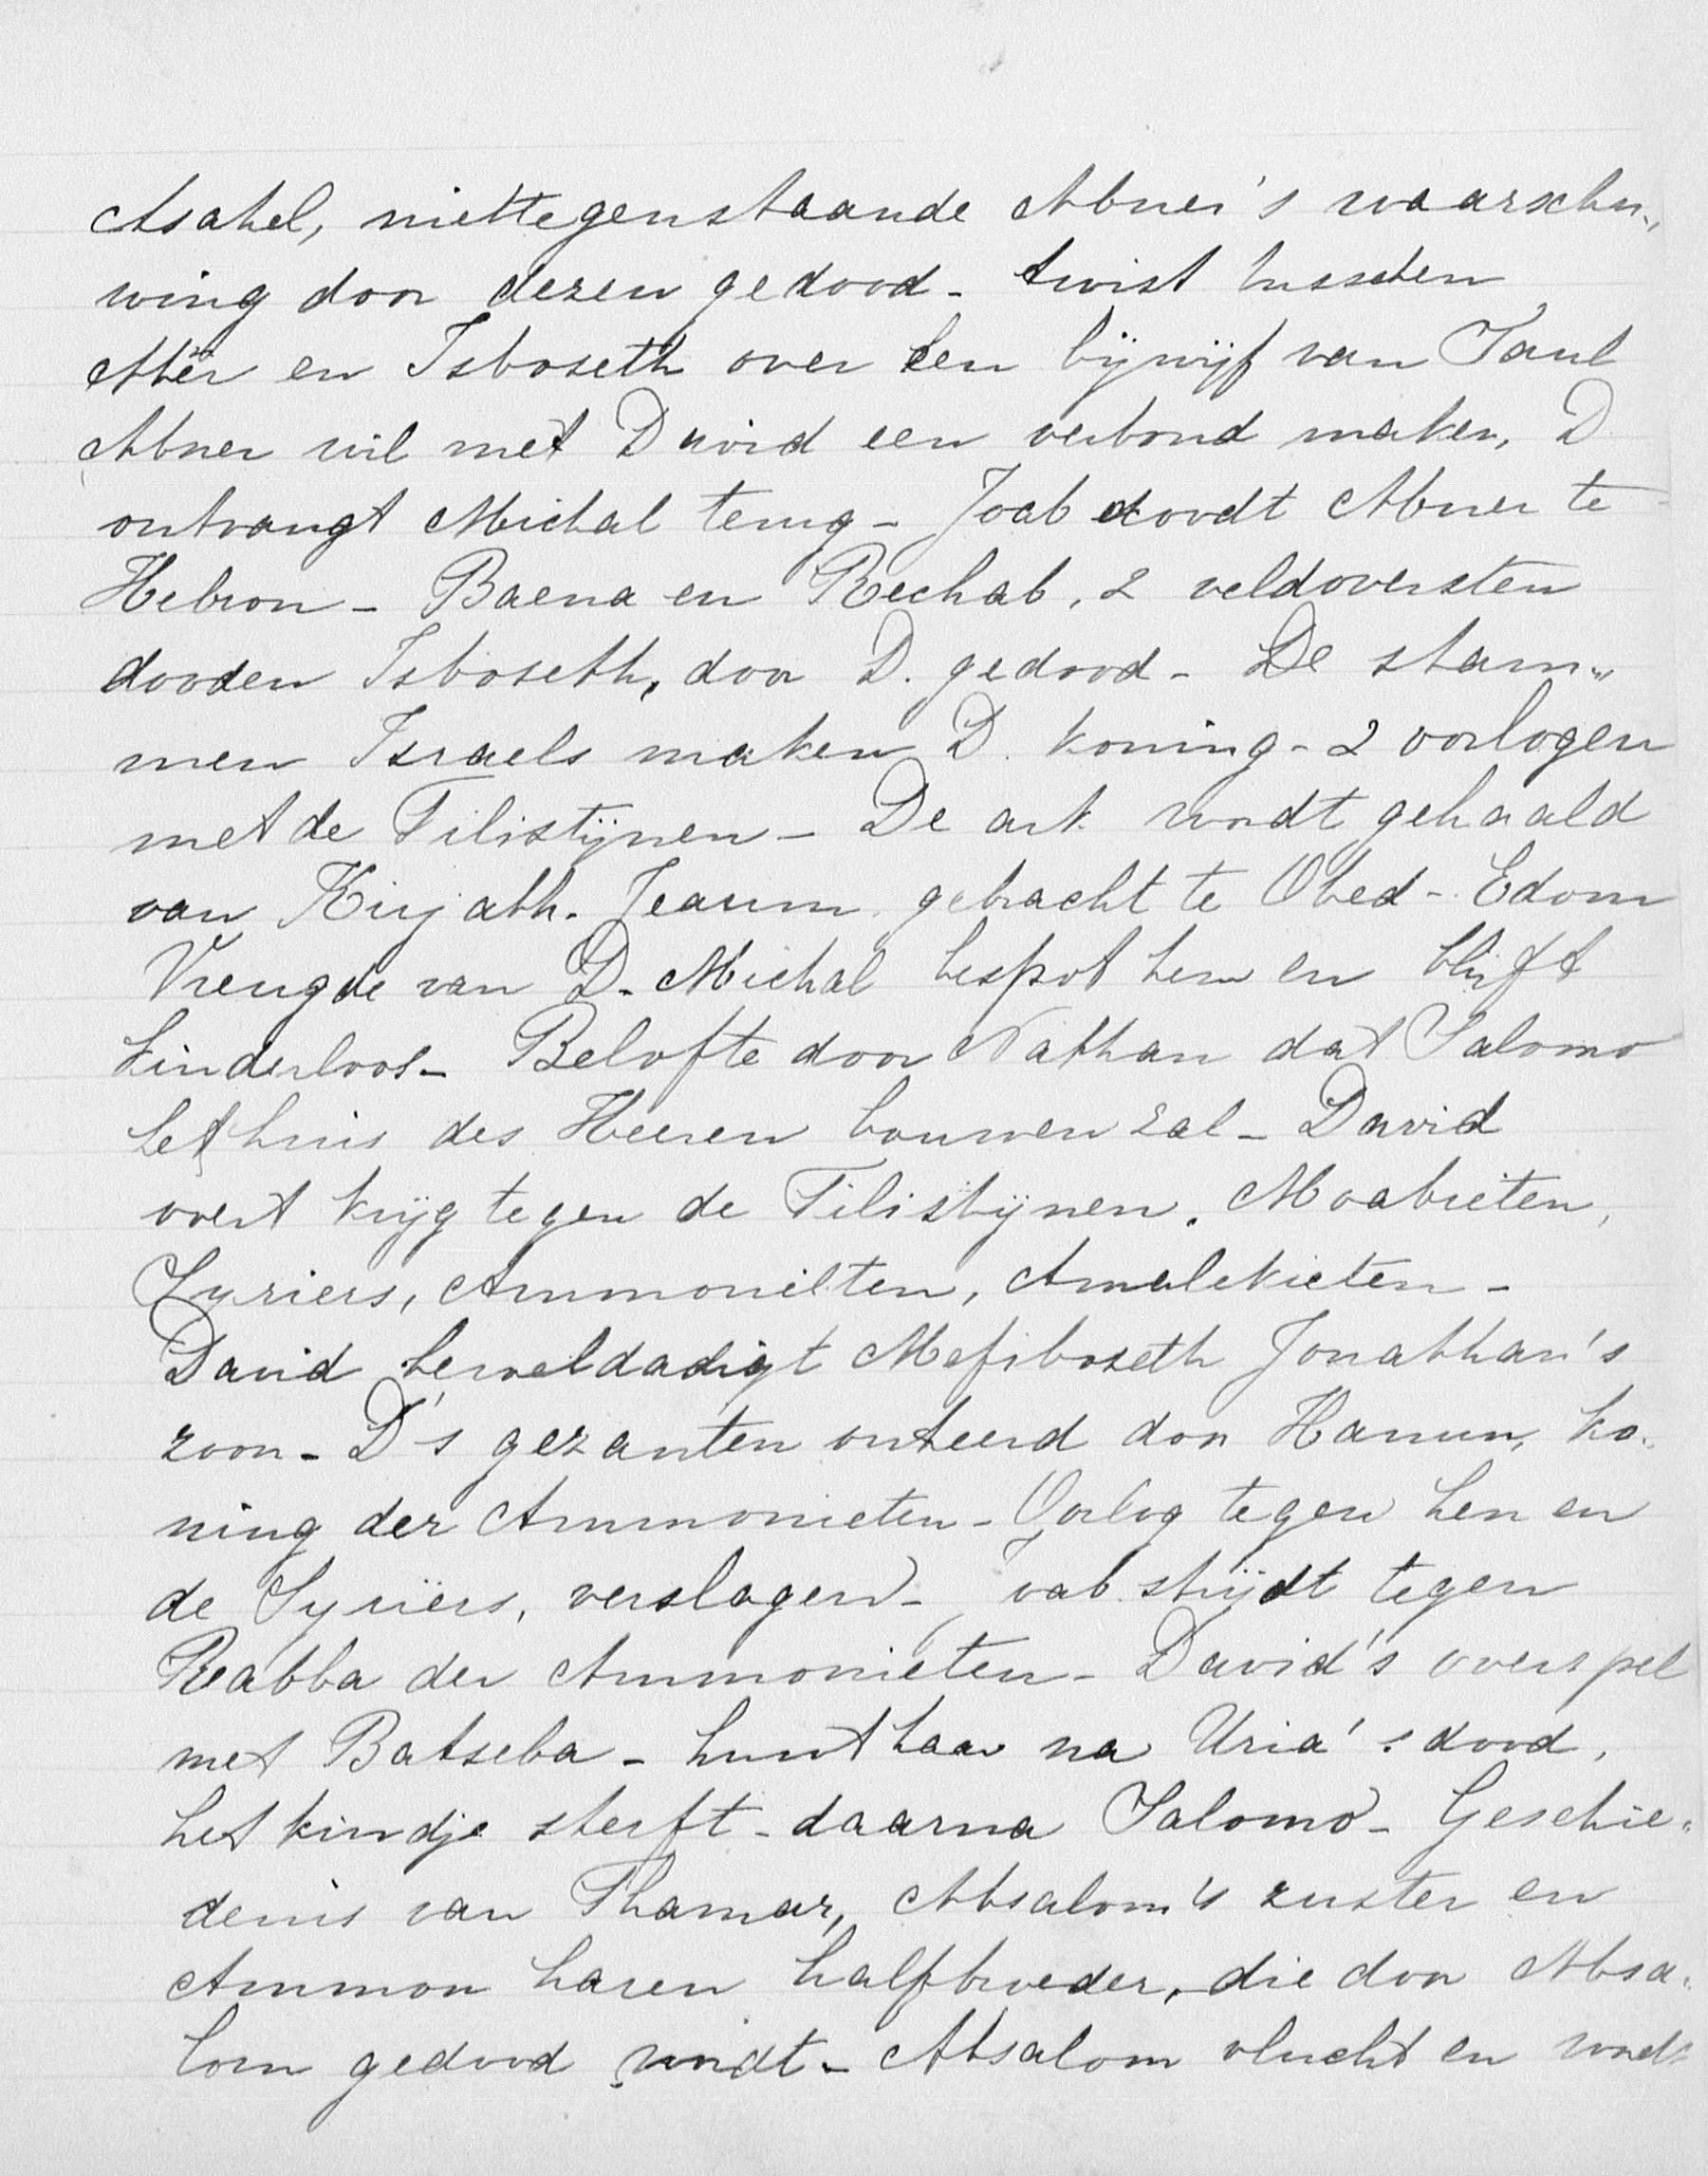 Asahel, niettegenstaande Abner's waarschu„
wing door dezen gedood - twist tusschen
Abner en Isboseth over een bijwijf van Saul
Abner wil met David een verbond maken, D.
ontvangt Michal terug - Joab doodt Abner te
Hebron - Baena en Rechab, 2 veldoversten
dooden Isboseth, door D. gedood - De stam„
men Israels maken D. koning - 2 oorlogen
met de Filistijnen - De ark wordt gehaald
van Kirjath-Jearim gebracht te Obed-Edom
Vreugde van D. Michal bespot hem en blijft
kinderloos - Belofte door Nathan dat Salomo
het huis des Heeren bouwen zal - David
voert krijg tegen de Filistijnen, Moabieten,
Syriers, Ammonieten, Amalekieten -
David beweldadigt Mefiboseth Jonathan's
zoon - D's gezanten onteerd door Hanun, ko„
ning der Ammonieten - Oorlog tegen hen en
de Syriërs, verslagen - Joab strijdt tegen
Rabba der Ammonieten - David's overspel
met Batseba - huwt haar na Uria's dood,
het kindje sterft - daarna Salomo - Geschie„
denis van Thamar, Absalom's zuster en
Ammon haren halfbroeder, die door Absa„
lom gedood wordt - Absalom vlucht en wordt